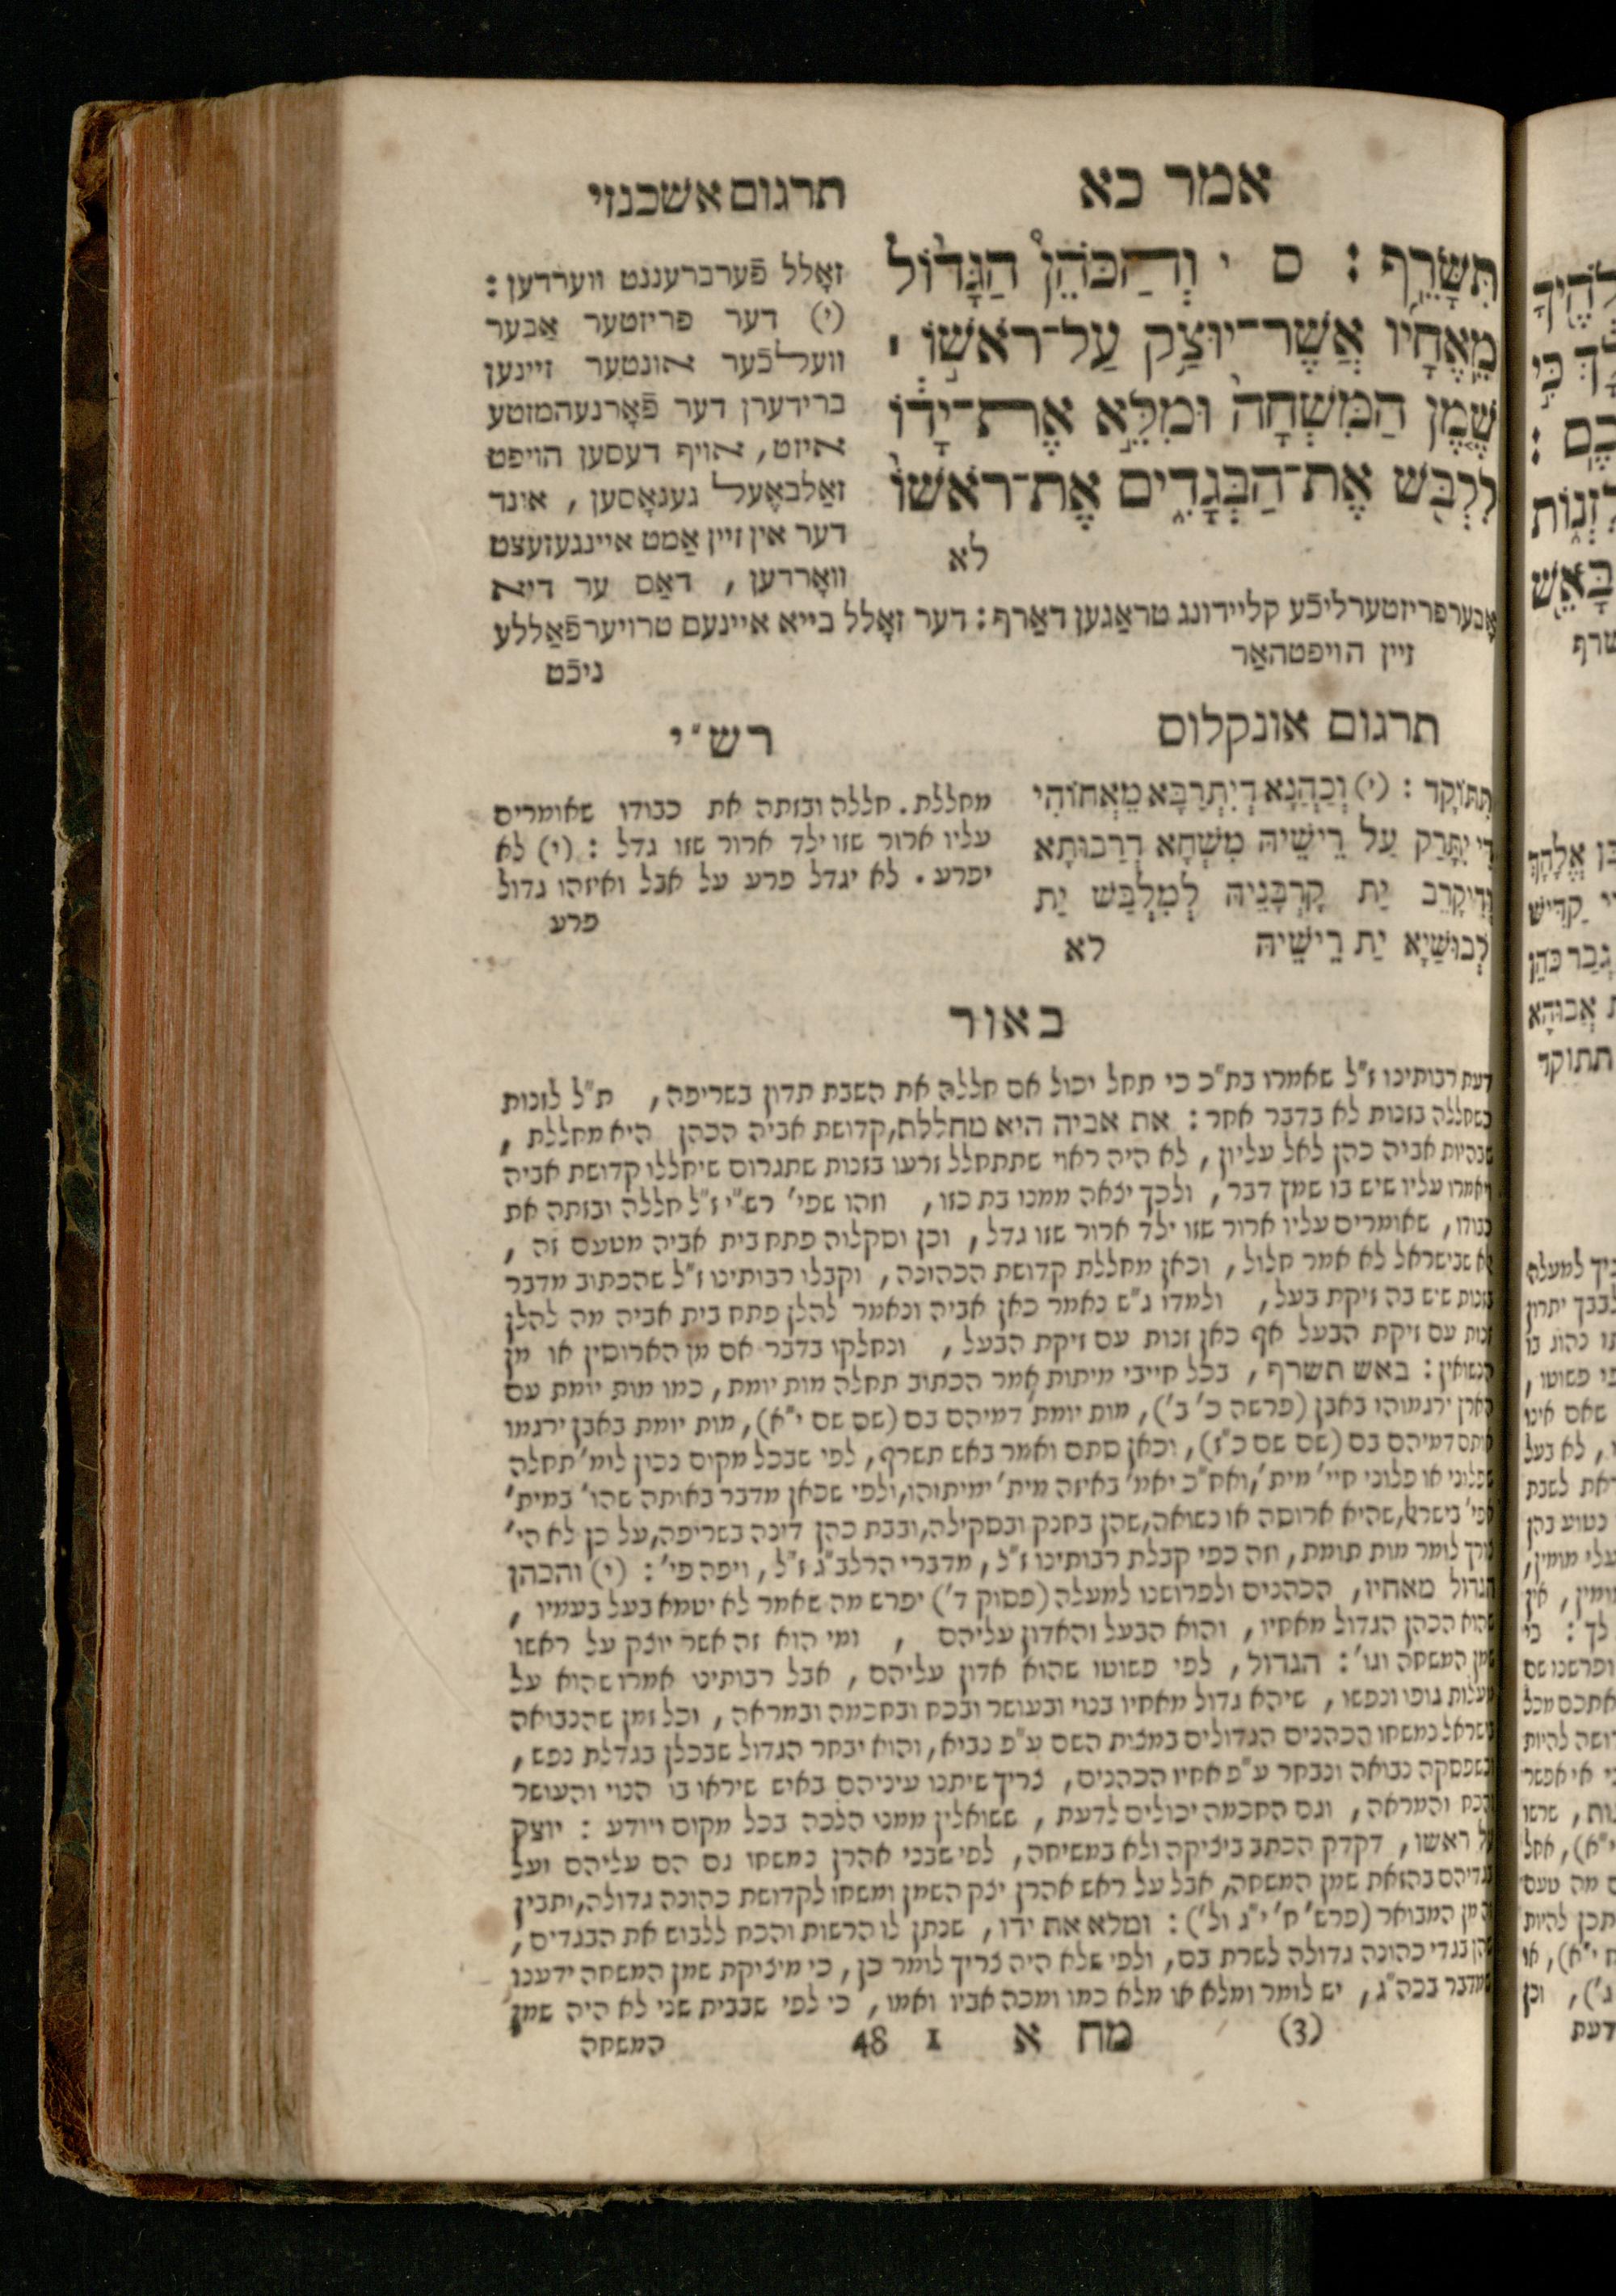 אמר כא
תרגום אשכנזי
תִּשָּׂרֵף : ס י וְהַכֹּהֵן הַגָּדוֹל
מֵאֶחָיו אֲשֶׁר־יוּצַק עַל־רֹאשׁוֹ ׀
שֶׁמֶן הַמִּשְׁחָה וּמִלֵּא אֶת־יָדוֹ
לִלְבֹּשׁ אֶת־הַבְּגָדִים אֶת־רֹאשׁוֹ
לא
זאָלל פֿערברעננט ווערדען :
(י) דער פריזטער אַבער
וועלכֿער אונטער זיינען
ברידערן דער פֿאָרנעהמזטע
איזט, אויף דעסען הויפט
זאַלבאָעל געגאָסען, אונד
דער אין זיין אַמט איינגעזעצט
וואָררען, דאַס ער דיא
אָבערפריזטערליכֿע קליידונג טראַגען דאַרף: דער זאָלל בייא איינעם טרויערפֿאַללע
זיין הויפטהאַר
ניכֿט
תרגום אונקלוס
תִּתּוֹקָד : (י) וְכַהֲנָא דְיִתְרַבָּא מֵאֲחוֹהִי
דִי יִתָּרַק עַל רֵישֵׁיהּ מִשְׁחָא דִרְבוּתָא
וְדִיקָרֵב יַת קֻרְבָּנֵיהּ לְמִלְבַּשׁ יַת
לְבוּשַׁיָא יַת רֵישֵׁיהּ
לא
רש״י
מחללת. חללה ובזתה את כבודו שאומרים
עליו ארור שזו ילד ארור שזו גדל : (י) לא
יפרע. לא יגדל פרע על אבל ואיזהו גדול
פרע
באור
דעת רבותינו ז״ל שאמרו בת״כ כי תחל יכול אם חללה את השבת תדון בשריפה, ת״ל לזנות
כשחללה בזנות לא בדבר אחר : את אביה היא מחללת, קדושת אביה הכהן היא מחללת,
שבהיות אביה כהן לאל עליון, לא היה ראוי שתתחלל זרעו בזנות שתגרום שיחללו קדושת אביה
ויאמרו עליו שיש בו שמן דבר, ולכך יצאה ממנו בת כזו, וזהו שפי׳ רש״י ז״ל חללה ובזתה את
כבודו, שאומרים עליו ארור שזו ילד ארור שזו גדל, וכן וסקלוה פתח בית אביה מטעם זה,
לא שבישראל לא אמר חלול, וכאן מחללת קדושת הכהונה, וקבלו רבותינו ז״ל שהכתוב מדבר
בזנות שיש בה זיקת בעל, ולמדו ג״ש נאמר כאן אביה ונאמר להלן פתח בית אביה מה להלן
זנות עם זיקת הבעל אף כאן זנות עם זיקת הבעל, ונחלקו בדבר אם מן הארוסין או מן
הנשואין : באש תשרף, בכל חייבי מיתות אמר הכתוב תחלה מות יומת, כמו מות יומת עם
הארץ ירגמוהו באבן (פרשה כ׳ ב׳), מות יומת דמיהם בם (שם שם י״א), מות יומת באבן ירגמו
אותם דמיהם בם (שם שם כ״ז), וכאן סתם ואמר באש תשרף, לפי שבכל מקום נכון לומ׳ תחלה
שפלוני או פלוני חיי׳ מית׳, ואח״כ יאמ׳ באיזה מית׳ ימיתוהו, ולפי שכאן מדבר באותה שהו׳ במית׳
אפי׳ בישרא׳, שהיא ארוסה או נשואה, שהן בחנק ובסקילה, ובבת כהן דינה בשריפה, על כן לא הי׳
צורך לומר מות תומת, וזה כפי קבלת רבותינו ז״ל, מדברי הרלב״ג ז״ל, ויפה פי׳ : (י) והכהן
הגדול מאחיו, הכהנים ולפרושנו למעלה (פסוק ד׳) יפרש מה שאמר לא יטמא בעל בעמיו,
שהוא הכהן הגדול מאחיו, והוא הבעל והאדון עליהם, ומי הוא זה אשר יוצק על ראשו
שמן המשחה וגו׳ : הגדול, לפי פשוטו שהוא אדון עליהם, אבל רבותינו אמרו שהוא על
מעלות גופו ונפשו, שיהא גדול מאחיו בנוי ובעושר ובכח ובחכמה ובמראה, וכל זמן שהנבואה
בישראל נמשחו הכהנים הגדולים במצות השם ע״פ נביא, והוא יבחר הגדול שבכלן בגדלת נפש,
ובשפסקה נבואה ונבחר ע״פ אחיו הכהנים, צריך שיתנו עיניהם באיש שיראו בו הנוי והעושר
והכח והמראה, וגם החכמה יכולים לדעת, ששואלין ממנו הלכה בכל מקום ויודע : יוצק
על ראשו, דקדק הכתב ביציקה ולא במשיחה, לפי שבני אהרן נמשחו גם הם עליהם ועל
בגדיהם בהזאת שמן המשחה, אבל על ראש אהרן יצק השמן ומשחו לקדושת כהונה גדולה, יתבין
מן המבואר (פרש׳ ח׳ י״ג ול׳) : ומלא את ידו, שנתן לו הרשות והכח ללבוש את הבגדים,
שהן בגדי כהונה גדולה לשרת בם, ולפי שלא היה צריך לומר כן, כי מיציקת שמן המשחה ידענו
שמדבר בכה״ג, יש לומר ומלא או מלא כמו ומכה אביו ואמו, כי לפי שבבית שני לא היה שמן
(3)
מח א
1 48
המשחה